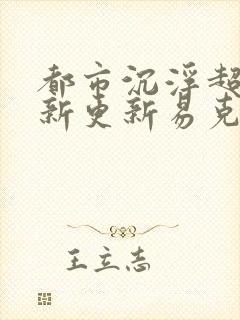 都市沉浮超
新更新易克
王立志